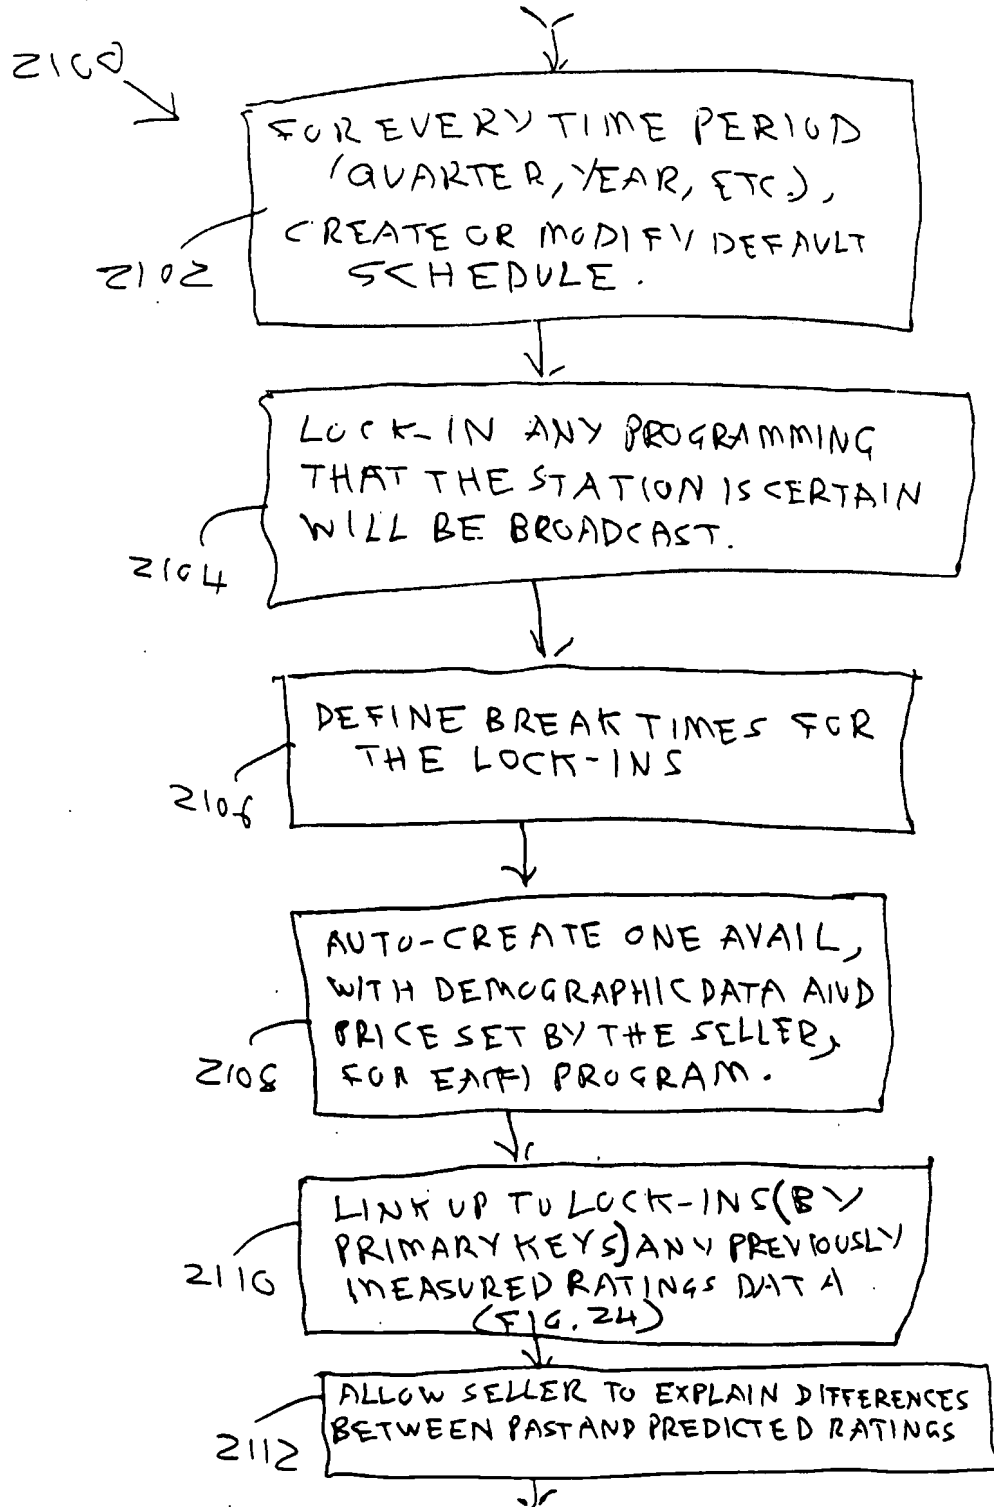 2100
FOR EVERY TIME PERIOD
(QUARTER, YEAR, ETC.),
CREATE OR MODIFY DEFAULT
SCHEDULE.
2102
LOCK-IN ANY PROGRAMMING
THAT THE STATION IS CERTAIN
WILL BE BROADCAST.
2104
DEFINE BREAK TIMES FOR
THE LOCK-INS
2106
AUTO-CREATE ONE AVAIL,
WITH DEMOGRAPHIC DATA AND
PRICE SET BY THE SELLER,
FOR EACH PROGRAM.
2108
LINK UP TO LOCK-INS (BY
PRIMARY KEYS) ANY PREVIOUSLY
MEASURED RATINGS DATA
(FIG. 24)
2110
ALLOW SELLER TO EXPLAIN DIFFERENCES
BETWEEN PAST AND PREDICTED RATINGS
2112